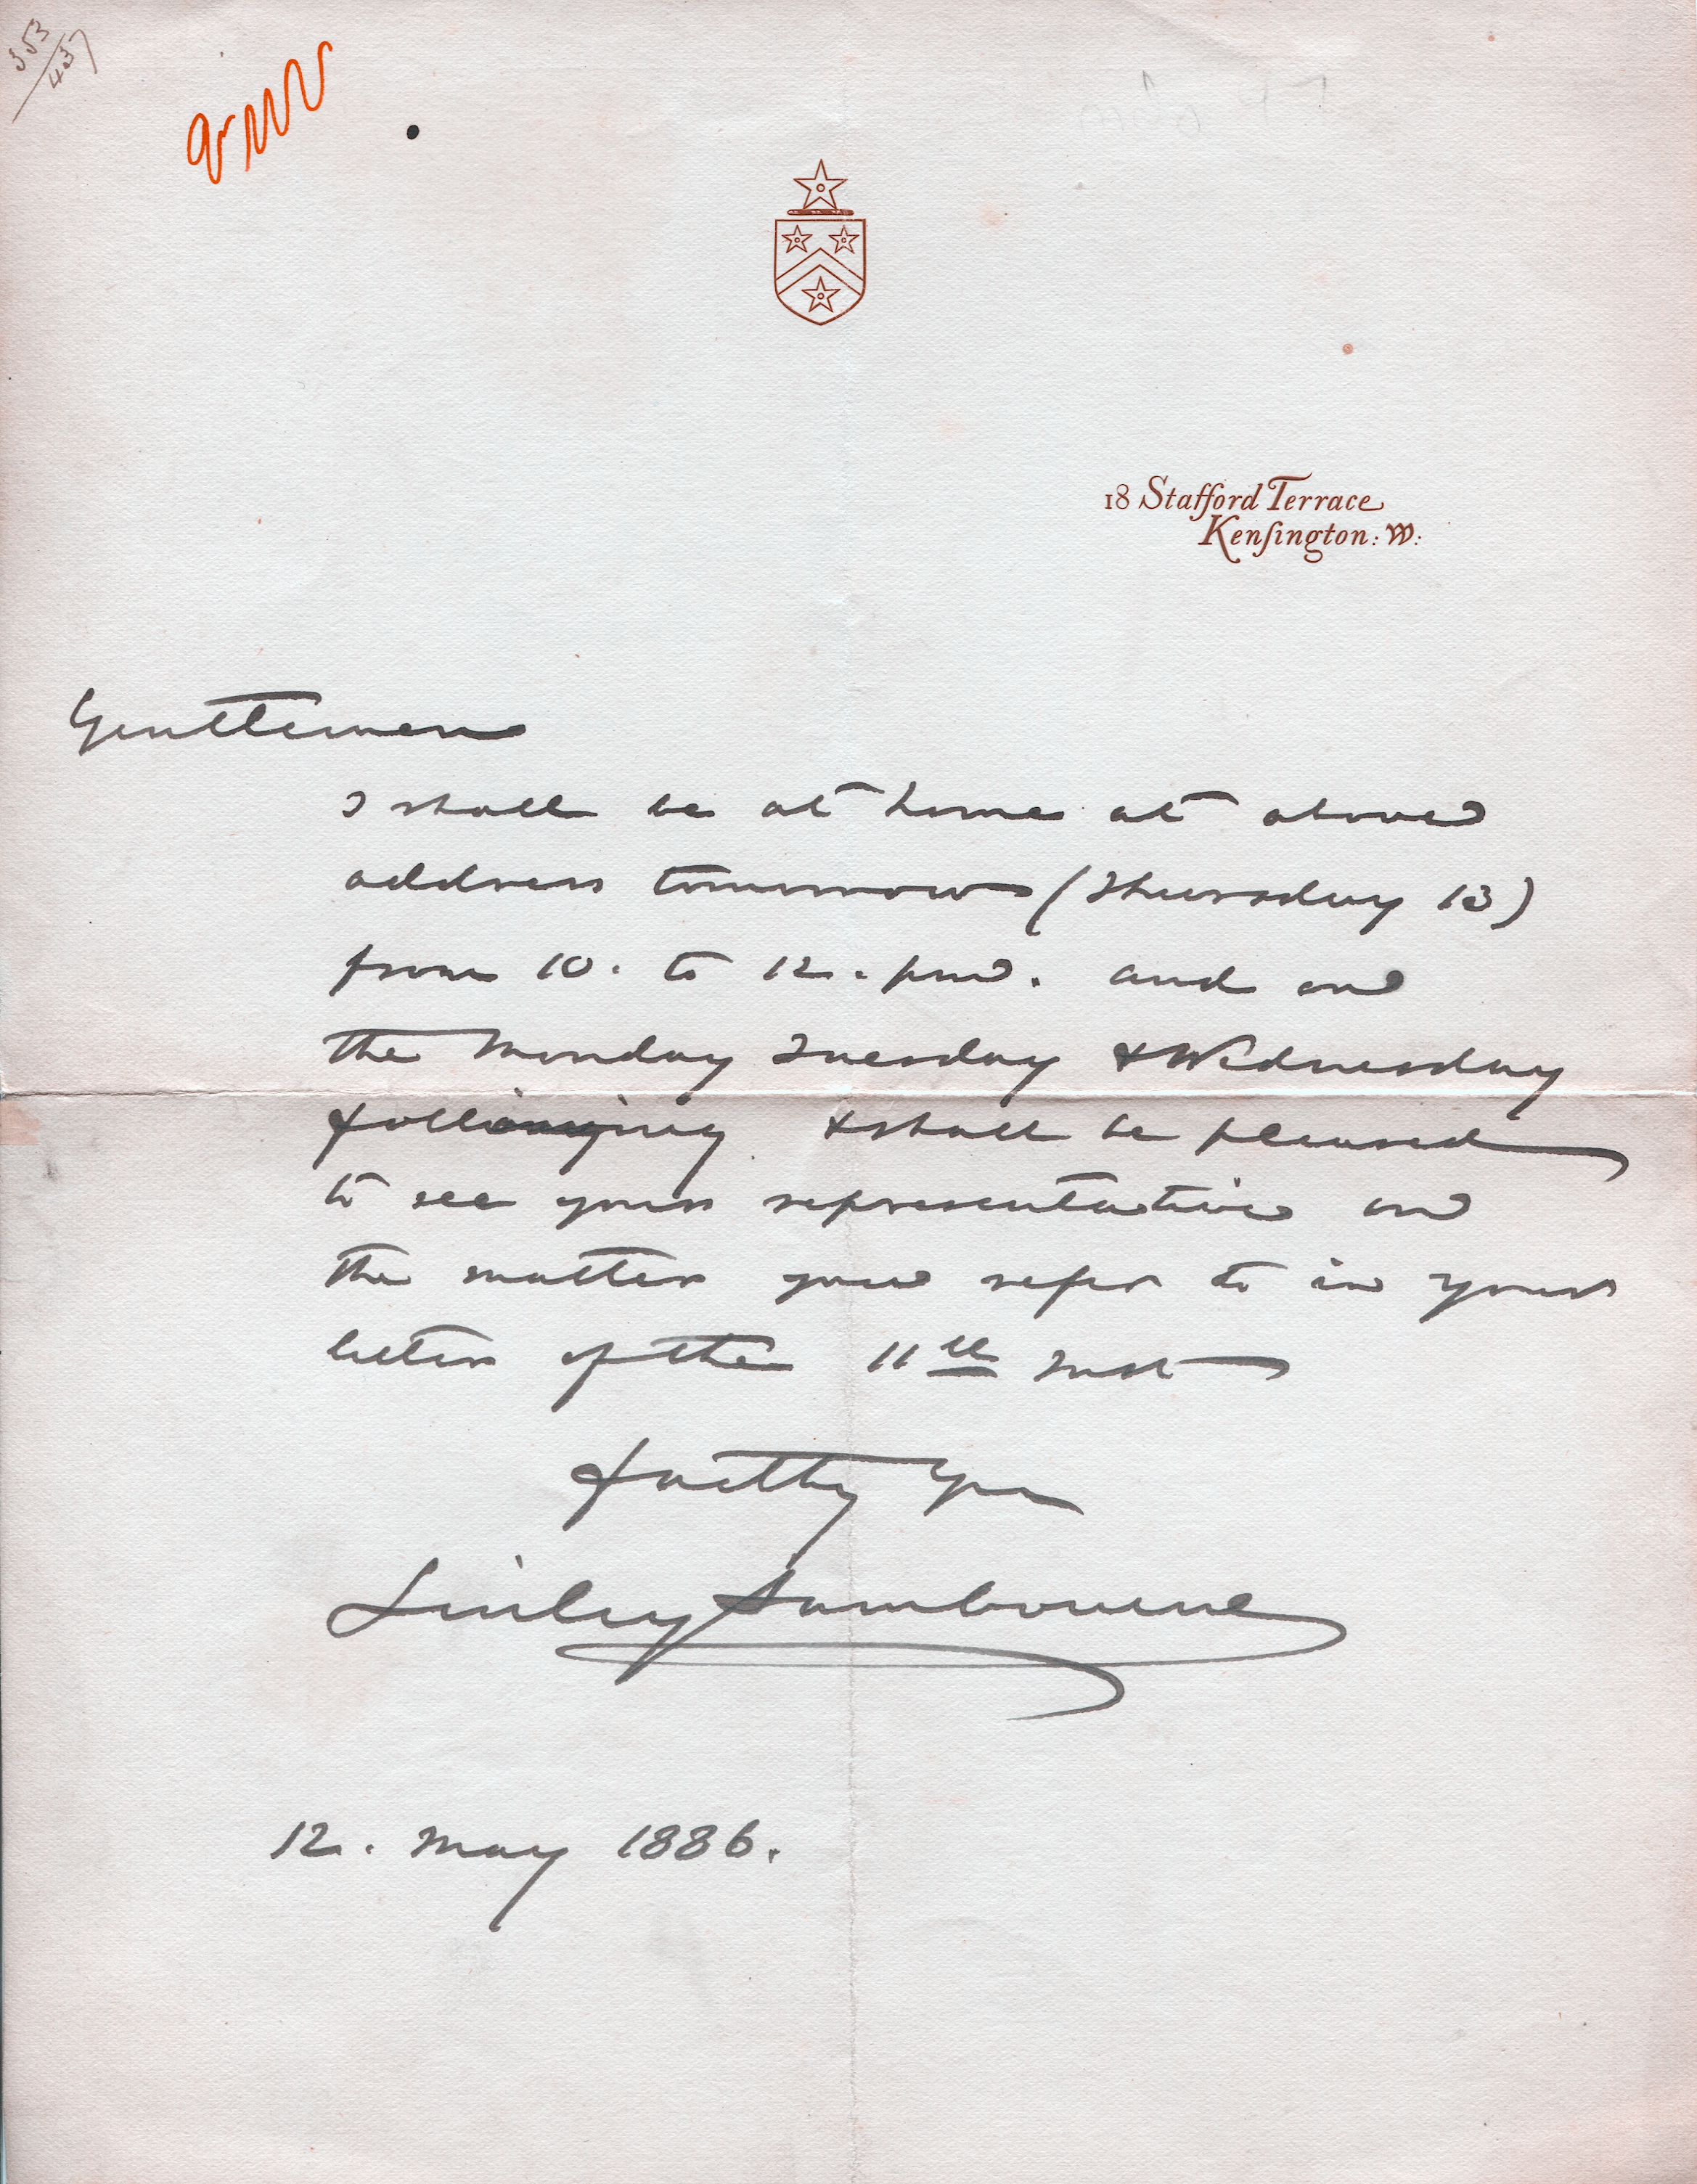 353
437
18 Stafford Terrace
Kenſington: W:
Gentlemen
I shall be at home at above
address tomorrow (Thursday 13)
from 10. to 12. pm. and on
the Monday Tuesday & Wednesday
following & shall be pleased
to see your representative on
the matter you refer to in your
letter of the 11th Inst
Faithy Yrs
Linley Sambourne
12. May 1886.